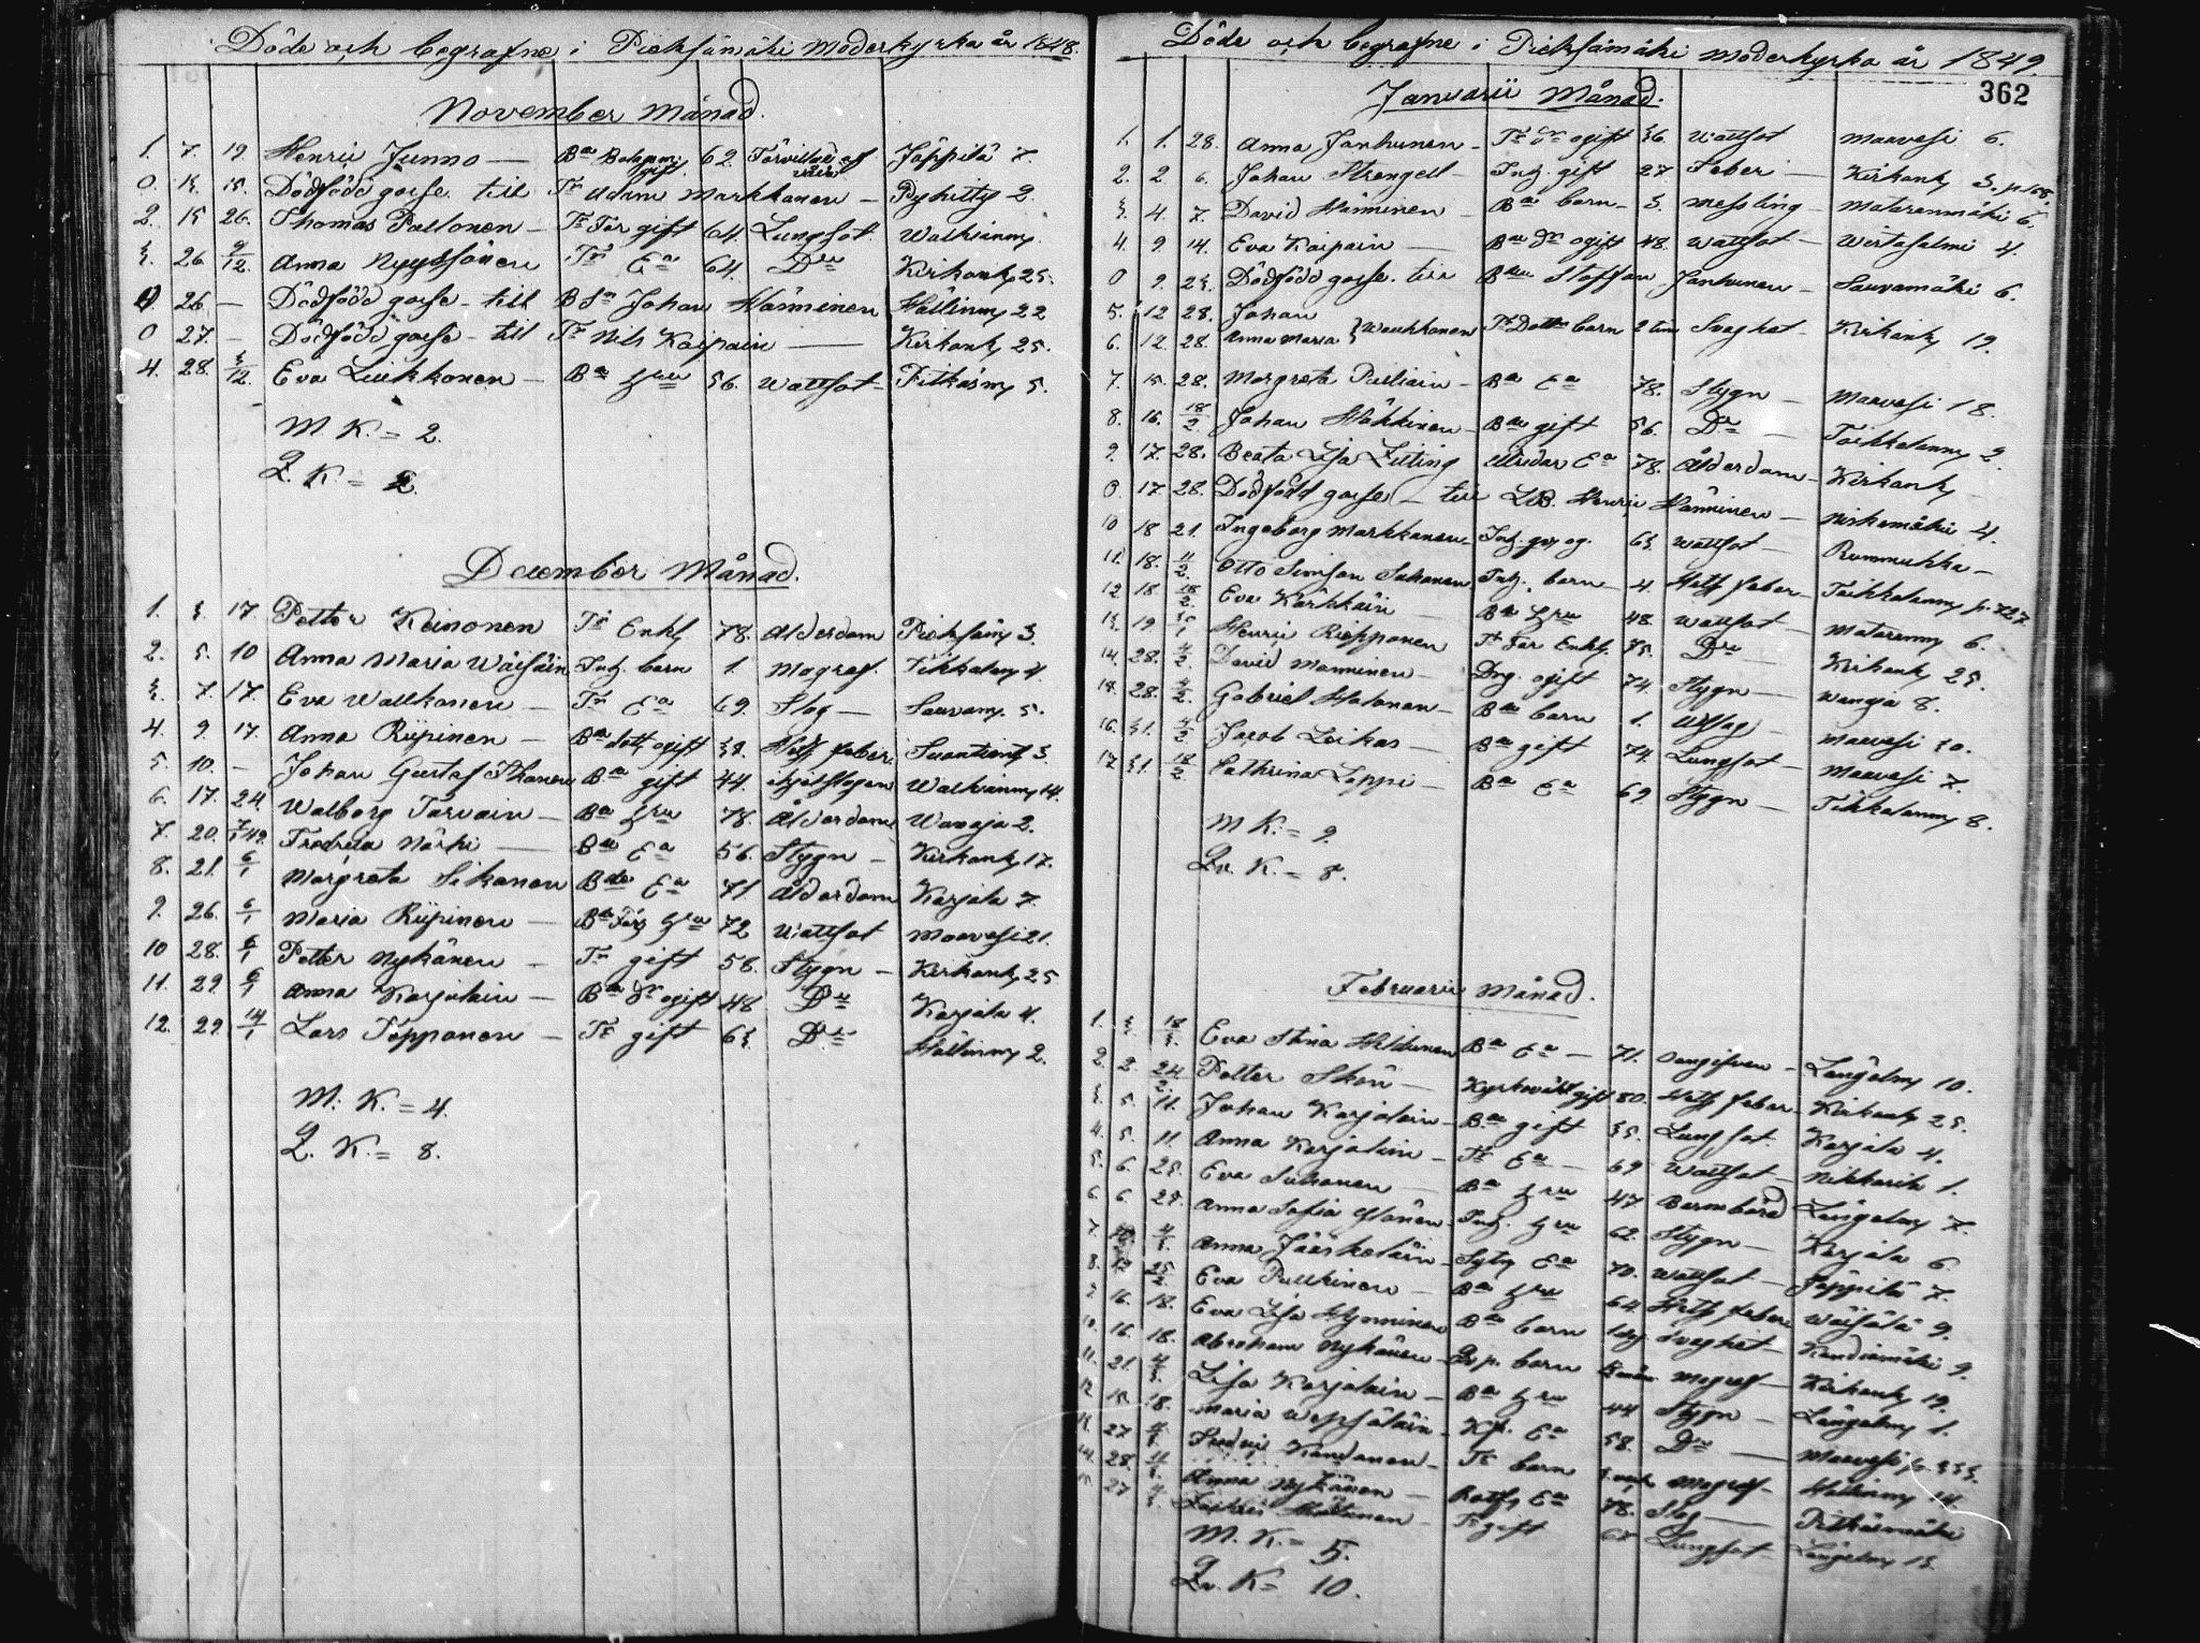 Döde och begrafne i Pieksämäki Moderkyrka år 1848.
November Månad.
1. 7. 19. Henric Junno — Ba gift 62. Jäppilä 7.
0. 15. Dödfödd gosse till Tr Adam Markkanen — Pyhitty 2.
2. 15 26. Thomas Paltonen — Tr Far gift 64. Lungsot. Walkiamy
3. 26. 9/12. Anna Nyyssönen Tr Ea 64. Do Kirkonky 25.
0. 26. — Dödfödd gosse — till B Sn Johan Hänninen Hällinmy 22
0 27. — Dödfödd gosse — till Tr Nils Kaipain — Kirkonky 25.
4. 28. 3/12. Eva Liukkonen — Ba Hru 56. Wattsot — Pitkäsmy 5.
M. K. = 2.
Q. K = 2.
December Månad.
1. 3. 17. Petter Keinonen Tr Enkl 78. Ålderdom Pieksämy 3.
2. 5. 10 Anna Maria Wäisäin Inh. barn 1. Magref. Tikkalamy 4.
3. 7. 17. Eva Walkonen — Tr Ea 69. Slag — Sauvamy. 5.
4. 9. 17. Anna Riipinen — Ba dott ogift 38. Hets feber. Suontient 3.
5. 10. — Johan Gustaf Ikonen Ba gift 44. Walkiamy 14.
6. 17. 24. Walborg Tarvain — Ba Hru 78. Ålderdom Wanaja 2.
7. 20. 7/1 49. Fredrica Närhi — Ba Ea 56. Stygn — Kirkonky 17.
8. 21. 6/1 Margreta Sikanen Bde Ea 71. Ålderdom Karjala 7.
9. 26. 6/1 Maria Riipinen — Ba Hru 72 Wattsot Maavesi 21.
10 28. 6/1 Petter Nykänen — Tr gift 58. Stygn — Kirkonky 25
11. 29. 6/1 Anna Karjalain — Ba Dr ogift 48 Do Karjala 4.
12. 29. 14/1 Lars Topponen — Tr gift 63. Do Hällinmy 2.
M. K. = 4.
Q. K. = 8.
Döde och begrafne i Pieksämäki Moderkyrka år 1849.
362
Januarii Månad.
1. 1. 28. Anna Janhunen — Tr Dr ogift 36. Wattsot Maavesi 6.
2. 2. 6. Johan Strengell — Inh. gift 27. Feber — Kirkonky 3.
3. 4. 7. David Hänninen — Ba barn — 3. Messling — Mataranmäki 6.
4. 9. 14. Eva Kaipain — Ba Dr ogift 48. Wattsot — Wirtasalmi 4.
0 9. 23. Dödfödd gosse till Ba Staffan Janhunen — Sauvamäki 6.
5. 12 28. Johan
6. 12. 28. Anna Maria } Waukkonen Tr Dotters barn 2 tim Svaghet — Kirkonky 19.
7. 15. 28. Margreta Pulliain — Ba Ea 78. Stygn — Maavesi 18.
8. 16. 18/2 Johan Häkkinen — Ba gift 56. Do — Toikkalamy 2.
9. 17. 28. Beata Lisa Zitting Ea 78. Ålderdom — Kirkonky
0. 17. 28. Dödfödd gosse — till LB. Henric Hänninen — Niskamäki 4.
10 18 21. Ingeborg Markkanen — Inh. og. 63. Wattsot — Rummukka —
11. 18. 11/2. Otto Simson Suhonen Inh. barn — 4. Hets feber — Toikkalamy p. 727
12 18 18/2. Eva Kärkkäin — Ba Hru 48. Wattsot — Mataranmy 6.
13. 19. Henric Riepponen Tr Far Enkl. 75. Do — Kirkonky 25.
14. 28. 4/2. David Manninen — Drg. ogift 74. Stygn — Wangia 8.
15. 28. 4/2. Gabriel Halonen — Ba barn 1. Utslag — Maavesi 30.
16. 31. 4/2 Jacob Leikas — Ba gift 74. Lungsot — Maavesi 7.
17 31. 18/2 Cathrina Lappi — Ba Ea 69. Stygn — Tikkalamy 8.
M K. = 9.
Qv. K. = 8.
Februarii Månad.
1. 3. 18/3. Eva Stina Hildunen Ba Ea — 71. Längelmy 10.
2. 2. 24/2. Petter Skön — Kyrkovakt gift 80. Hets feber. Kirkonky 25.
3. 5. 11. Johan Karjalain — Ba gift 35. Lungsot. Karjala 4.
4. 5. 11. Anna Karjalain — Tr Ea — 69 Wattsot — Nikkarila 1.
5. 6. 25. Eva Suhonen — Ba Hru 47 Barnsbörd Längelmy 7.
6. 6. 25. Anna Sofia — Inh. Hru 62. Stygn — Karjala 6
7. 4/3. Anna Jääskeläin — Sytg Ea 70. Wattsot — Jäppilä 7.
8. 25/2. Eva Pulkinen — Ba Hru 64. Hets feber Wäisälä 9.
9. 16. 18. Eva Lisa Hynninen Ba barn 1 dg. Svaghet — Kandiamäki 9.
10. 16. 18. Abraham Nykänen — barn Magref — Kirkonky 19.
11. 21. 4/3. Lisa Karjalain — Ba Hru 44 Stygn — Längelmy 1.
12 15. 18. Maria Wepsäläin — Ea 58. Do — Maavesi p. 333.
13. 27 4/3. Kandanen — Tr barn Magref — Hällinmy 14.
14. 28. 11/3. Anna Nykänen — Ea 78. Slag — Pitkäsmäki
15. 27 — Tr gift Lungsot — Längelmy 13.
M. K. = 5.
Qv. K = 10.